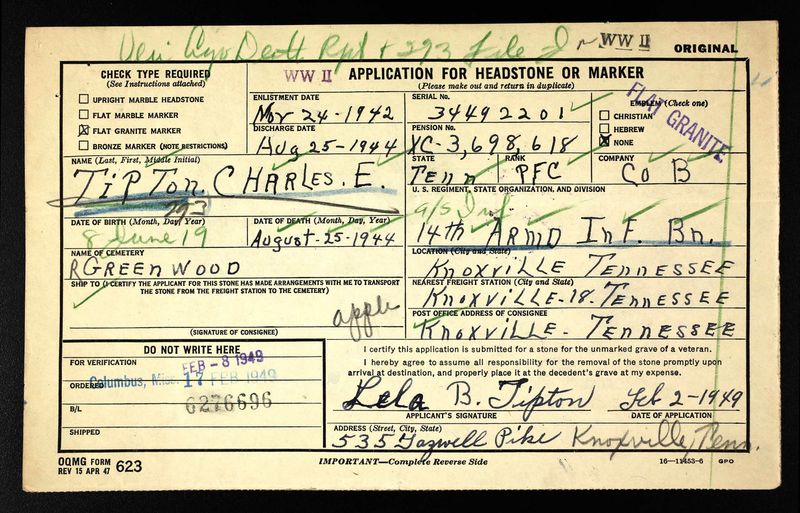 Veri Ayo Death Rpt + 293 File
WW II
ORIGINAL
CHECK TYPE REQUIRED
(See Instructions attached)
WW II
APPLICATION FOR HEADSTONE OR MARKER
(Please make out and return in duplicate)
UPRIGHT MARBLE HEADSTONE
FLAT MARBLE MARKER
FLAT GRANITE MARKER
BRONZE MARKER (NOTE RESTRICTIONS)
ENLISTMENT DATE
Nov 24-1942
DISCHARGE DATE
Aug 25-1944
SERIAL No.
34492201
PENSION No.
XC-3,698,618
EMBLEM (Check one)
CHRISTIAN
HEBREW
NONE
FLAT GRANITE
NAME (Last, First, Middle Initial)
TIPTON. CHARLES. E.
293
STATE
TENN
RANK
PFC
COMPANY
CO B
U. S. REGIMENT, STATE ORGANIZATION, AND DIVISION
a/s Inf.
14th ARMD INF. BN.
DATE OF BIRTH (Month, Day, Year)
8 June 19
DATE OF DEATH (Month, Day, Year)
August-25-1944
NAME OF CEMETERY
GREENWOOD
LOCATION (City and State)
KNOXVILLE TENNESSEE
SHIP TO (I CERTIFY THE APPLICANT FOR THIS STONE HAS MADE ARRANGEMENTS WITH ME TO TRANSPORT
THE STONE FROM THE FREIGHT STATION TO THE CEMETERY)
NEAREST FREIGHT STATION (City and State)
KNOXVILLE-18-TENNESSEE
apple
(SIGNATURE OF CONSIGNEE)
POST OFFICE ADDRESS OF CONSIGNEE
KNOXVILLE- TENNESSEE
DO NOT WRITE HERE
FOR VERIFICATION
FEB -8 1949
ORDERED
Columbus, Miss. 17 FEB 1949
6276696
B/L
SHIPPED
I certify this application is submitted for a stone for the unmarked grave of a veteran.
I hereby agree to assume all responsibility for the removal of the stone promptly upon
arrival at destination, and properly place it at the decedent's grave at my expense.
Lela B. Tipton Feb 2-1949
APPLICANT'S SIGNATURE
DATE OF APPLICATION
ADDRESS (Street, City, State)
535 Tazwell Pike Knoxville, Tenn.
OQMG FORM
REV 15 APR 47 623
IMPORTANT—Complete Reverse Side
16—11453-6 GPO